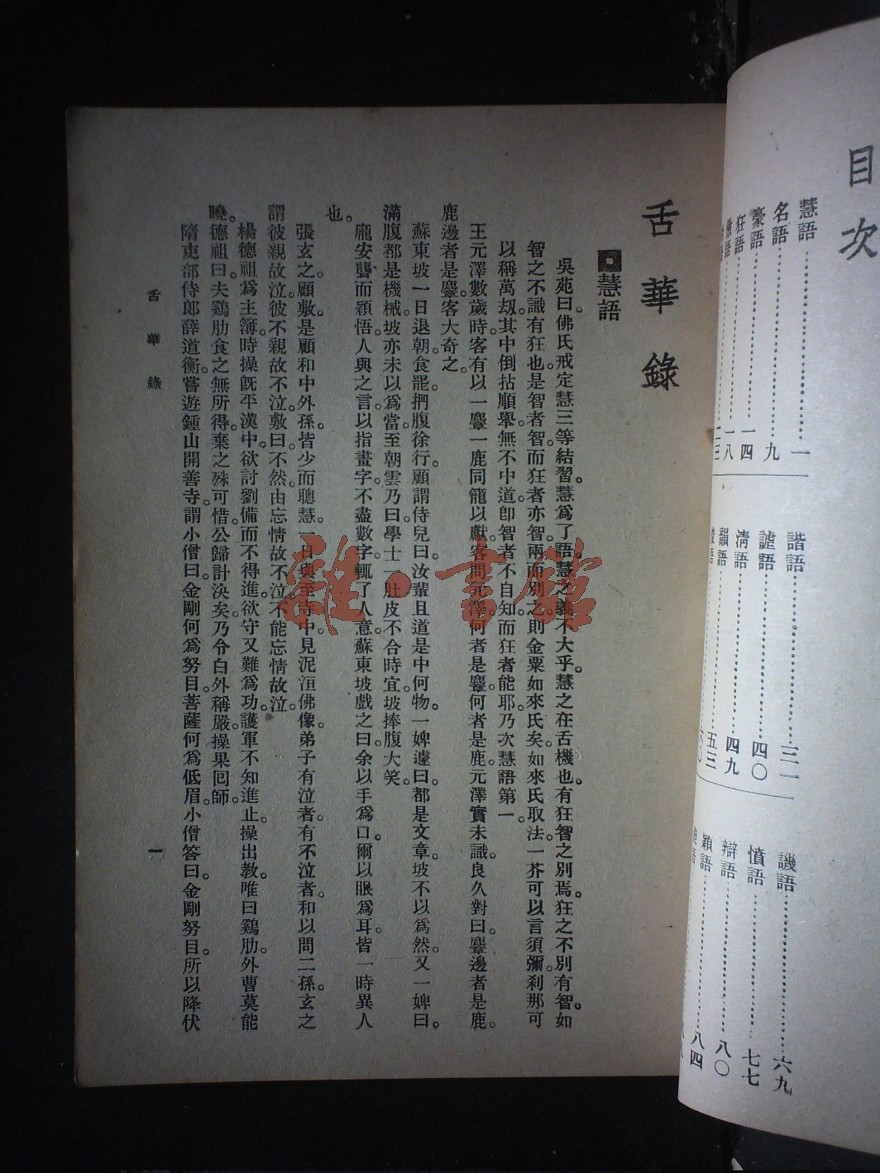 目次
慧語…………一
名語…………九
豪語…………一四
狂語…………一八
諧語…………三一
謔語…………四〇
清語…………四九
韻語…………五三
譏語…………六九
憤語…………七七
辯語…………八〇
穎語…………八四
舌華錄
慧語
吳苑曰。佛氏戒定慧三等結習。慧爲了語。慧之義不大乎。慧之在舌機也。有狂智之別焉。狂之不別有智。如
智之不識有狂也。是智者智。而狂者亦智。兩而別之。則金粟如來氏矣。如來氏取法。一芥可以言須彌。刹那可
以稱萬刼。其中倒拈順舉。無不中道。卽智者不自知。而狂者能耶。乃次慧語第一。
王元澤數歲時。客有以一麞一鹿同籠以獻。客問元澤。何者是麞。何者是鹿。元澤實未識。良久對曰。麞邊者是鹿。
鹿邊者是麞。客大奇之。
蘇東坡一日退朝。食罷。捫腹徐行。顧謂侍兒曰。汝輩且道是中何物。一婢遽曰。都是文章。坡不以爲然。又一婢曰。
滿腹都是機械。坡亦未以爲當。至朝雲乃曰。學士一肚皮不合時宜。坡捧腹大笑。
龐安聾而穎悟。人與之言。以指畫字。不盡數字。輒了人意。蘇東坡戲之曰。余以手爲口。爾以眼爲耳。皆一時異人
也。
張玄之顧敷。是顧和中外孫。皆少而聰慧。一日與至寺中。見泥洹佛像。弟子有泣者。有不泣者。和以問二孫。玄之
謂彼親故泣。彼不親故不泣。敷曰。不然。由忘情故不泣。不能忘情故泣。
楊德祖爲主簿時。操旣平漢中。欲討劉備而不得進。欲守又難爲功。護軍不知進止。操出教。唯曰鷄肋。外曹莫能
曉。德祖曰。夫鷄肋。食之無所得。棄之殊可惜。公歸計決矣。乃令白外稱嚴。操果囘師。
隋吏部侍郎薛道衡。嘗遊鍾山開善寺。謂小僧曰。金剛何爲努目。菩薩何爲低眉。小僧答曰。金剛努目。所以降伏
舌華錄
一
雜·書館